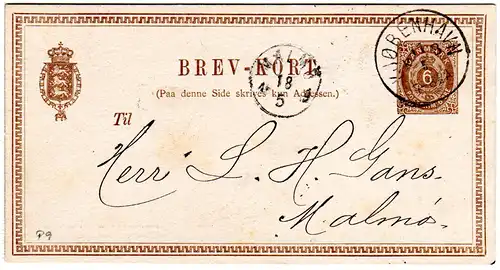 KJØBENHAVN
6
BREV-KORT.
MALMÖ
18
5
(Paa denne Side skrives kun Adressen.)
Til
Herr L. H. Gans.
Malmö.
P9